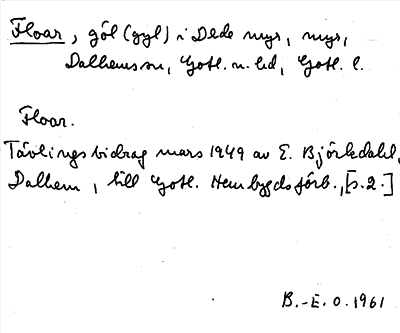 Floar, göl (gyl) i Dede myr, myr,
Dalhems sn, Gotl. n. hd, Gotl. l.
Floar.
Tävlingsbidrag mars 1949 av E. Björkdahl,
Dalhem, till Gotl. Hembygdsförb., [s. 2.]
B.-E. O. 1961